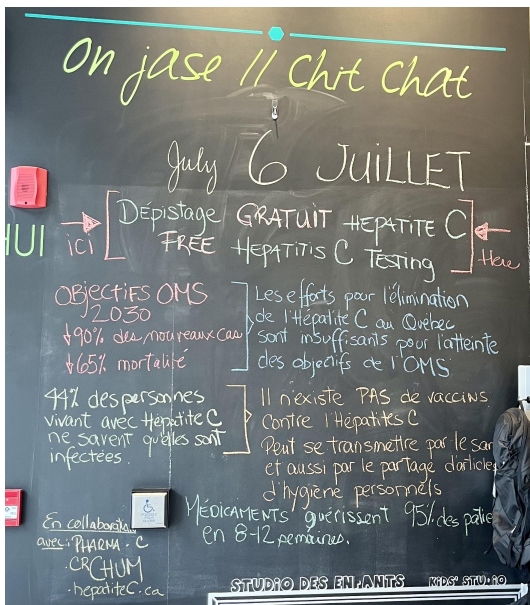 On jase // Chit Chat
July 6 JUILLET
HUI
ici
Dépistage GRATUIT HEPATITE C
FREE HEPATITIS C Testing
Here
OBJECTIFS OMS
2030
↓90% des nouveaux cas
↓65% mortalité
Les efforts pour l'élimination
de l'Hépatite C au Québec
sont insuffisants pour l'atteinte
des objectifs de l'OMS
44% des personnes
vivant avec Hépatite C
ne savent qu'elles sont
infectées.
Il n'existe PAS de vaccins
contre l'Hépatites C
Peut se transmettre par le san
et aussi par le partage d'articles
d'hygiène personnels
MÉDICAMENTS guérissent 95% des patie
en 8-12 semaines.
En collaboration
avec: PHARMA • C
• CRCHUM
• hepatiteC.ca
STUDIO DES ENFANTS KIDS' STUDIO